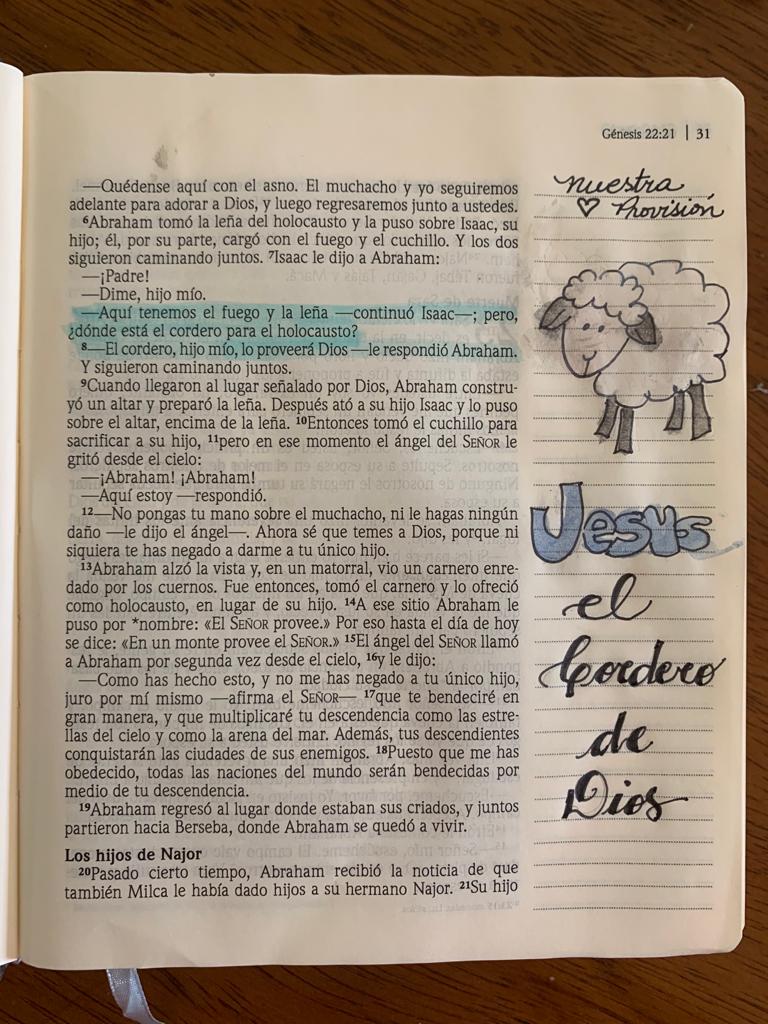 Génesis 22:21 | 31
—Quédense aquí con el asno. El muchacho y yo seguiremos
adelante para adorar a Dios, y luego regresaremos junto a ustedes.
⁶Abraham tomó la leña del holocausto y la puso sobre Isaac, su
hijo; él, por su parte, cargó con el fuego y el cuchillo. Y los dos
siguieron caminando juntos. ⁷Isaac le dijo a Abraham:
—¡Padre!
—Dime, hijo mío.
—Aquí tenemos el fuego y la leña —continuó Isaac—; pero,
¿dónde está el cordero para el holocausto?
⁸—El cordero, hijo mío, lo proveerá Dios —le respondió Abraham.
Y siguieron caminando juntos.
⁹Cuando llegaron al lugar señalado por Dios, Abraham constru-
yó un altar y preparó la leña. Después ató a su hijo Isaac y lo puso
sobre el altar, encima de la leña. ¹⁰Entonces tomó el cuchillo para
sacrificar a su hijo, ¹¹pero en ese momento el ángel del SEÑOR le
gritó desde el cielo:
—¡Abraham! ¡Abraham!
—Aquí estoy —respondió.
¹²—No pongas tu mano sobre el muchacho, ni le hagas ningún
daño —le dijo el ángel—. Ahora sé que temes a Dios, porque ni
siquiera te has negado a darme a tu único hijo.
¹³Abraham alzó la vista y, en un matorral, vio un carnero enre-
dado por los cuernos. Fue entonces, tomó el carnero y lo ofreció
como holocausto, en lugar de su hijo. ¹⁴A ese sitio Abraham le
puso por *nombre: «El SEÑOR provee.» Por eso hasta el día de hoy
se dice: «En un monte provee el SEÑOR.» ¹⁵El ángel del SEÑOR llamó
a Abraham por segunda vez desde el cielo, ¹⁶y le dijo:
—Como has hecho esto, y no me has negado a tu único hijo,
juro por mí mismo —afirma el SEÑOR— ¹⁷que te bendeciré en
gran manera, y que multiplicaré tu descendencia como las estre-
llas del cielo y como la arena del mar. Además, tus descendientes
conquistarán las ciudades de sus enemigos. ¹⁸Puesto que me has
obedecido, todas las naciones del mundo serán bendecidas por
medio de tu descendencia.
¹⁹Abraham regresó al lugar donde estaban sus criados, y juntos
partieron hacia Berseba, donde Abraham se quedó a vivir.
Los hijos de Najor
²⁰Pasado cierto tiempo, Abraham recibió la noticia de que
también Milca le había dado hijos a su hermano Najor. ²¹Su hijo
nuestra
♡ Provisión
Jesus
el
Cordero
de
Dios